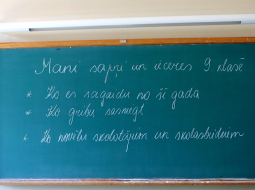 Mani sapņi un 9 klasē
* Ko es sagaidu no šī gada
* Ko gribu sasniegt
* Ko novēlu skolotājiem un skolasbiedriem